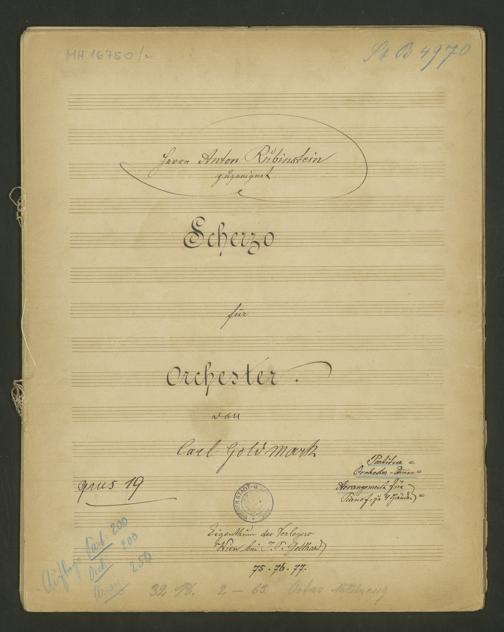 MH 16750/-
St B 4970
Herrn Anton Rubinstein
zugeeignet
Scherzo
für
Orchester.
von
Carl Goldmark
Partitur =
Orchester-Stimmen =
Arrangement für
Pianof. zu 4 Händen =
opus 19
Eigenthum des Verlegers
Wien bei J. P. Gotthard
75. 76. 77.
Auflage Part 200
Orch 200
250
32 Pl. 2 - 63.